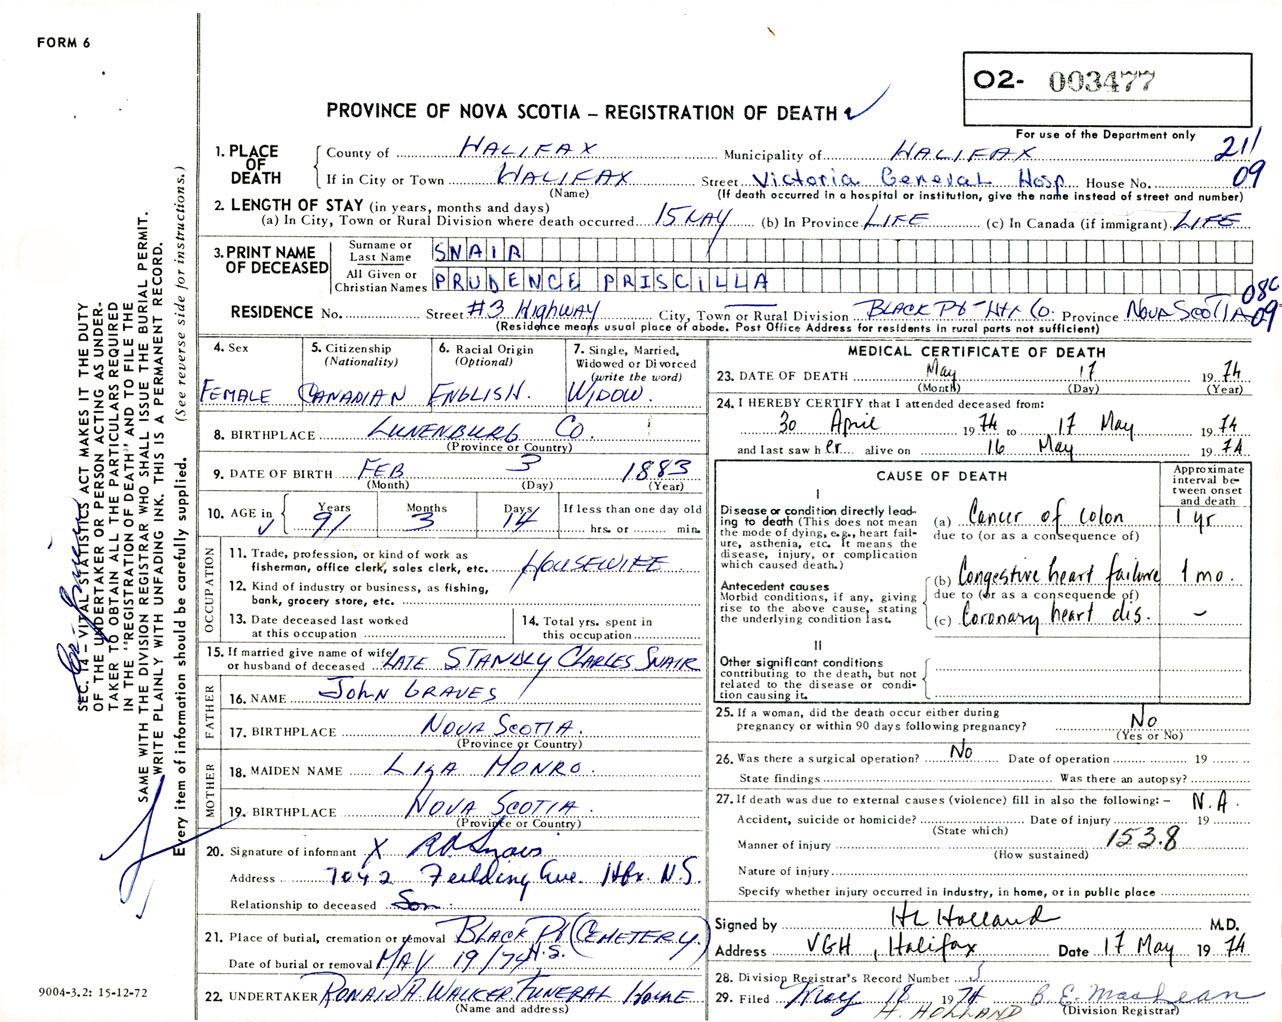 FORM 6
O2- 003477
PROVINCE OF NOVA SCOTIA – REGISTRATION OF DEATH
For use of the Department only
1. PLACE OF DEATH
County of HALIFAX Municipality of HALIFAX 211
If in City or Town HALIFAX Street Victoria General Hosp House No. 09
(Name) (If death occurred in a hospital or institution, give the name instead of street and number)
2. LENGTH OF STAY (in years, months and days)
(a) In City, Town or Rural Division where death occurred 15 MAY (b) In Province LIFE (c) In Canada (if immigrant) LIFE
3. PRINT NAME OF DECEASED
Surname or Last Name SNAIR
All Given or Christian Names PRUDENCE PRISCILLA
08C
RESIDENCE No. Street #3 Highway City, Town or Rural Division BLACK Pt - Hfx Co. Province NOVA SCOTIA 09
(Residence means usual place of abode. Post Office Address for residents in rural parts not sufficient)
4. Sex
FEMALE
5. Citizenship (Nationality)
CANADIAN
6. Racial Origin (Optional)
ENGLISH.
7. Single, Married, Widowed or Divorced (write the word)
WIDOW.
8. BIRTHPLACE LUNENBURG Co.
(Province or Country)
9. DATE OF BIRTH FEB 3 1883
(Month) (Day) (Year)
10. AGE in Years Months Days If less than one day old
91 3 14 hrs. or min.
OCCUPATION
11. Trade, profession, or kind of work as fisherman, office clerk, sales clerk, etc. HOUSEWIFE
12. Kind of industry or business, as fishing, bank, grocery store, etc.
13. Date deceased last worked at this occupation
14. Total yrs. spent in this occupation
15. If married give name of wife or husband of deceased LATE STANDLY CHARLES SNAIR
FATHER
16. NAME JOHN GRAVES
17. BIRTHPLACE NOVA SCOTIA.
(Province or Country)
MOTHER
18. MAIDEN NAME LIZA MONRO.
19. BIRTHPLACE NOVA SCOTIA.
(Province or Country)
20. Signature of informant X R A Snair
Address 7042 Feilding Ave. Hfx. N.S.
Relationship to deceased Son
21. Place of burial, cremation or removal BLACK Pt (CEMETERY.) N.S.
Date of burial or removal MAY 19/74
22. UNDERTAKER RONALD A. WALKER FUNERAL HOME
(Name and address)
MEDICAL CERTIFICATE OF DEATH
23. DATE OF DEATH May 17 1974
(Month) (Day) (Year)
24. I HEREBY CERTIFY that I attended deceased from:
30 April 1974 to 17 May 1974
and last saw h er alive on 16 May 1974
CAUSE OF DEATH
Approximate interval between onset and death
I
Disease or condition directly leading to death (This does not mean the mode of dying, e.g., heart failure, asthenia, etc. It means the disease, injury, or complication which caused death.)
(a) Cancer of colon 1 yr
due to (or as a consequence of)
Antecedent causes
Morbid conditions, if any, giving rise to the above cause, stating the underlying condition last.
(b) Congestive heart failure 1 mo.
due to (or as a consequence of)
(c) Coronary heart dis. –
II
Other significant conditions contributing to the death, but not related to the disease or condition causing it.
25. If a woman, did the death occur either during pregnancy or within 90 days following pregnancy? No
(Yes or No)
26. Was there a surgical operation? No Date of operation 19
State findings Was there an autopsy?
27. If death was due to external causes (violence) fill in also the following: – N.A.
Accident, suicide or homicide? Date of injury 19
(State which)
Manner of injury 153.8
(How sustained)
Nature of injury
Specify whether injury occurred in industry, in home, or in public place
Signed by HL Holland M.D.
Address VGH, Halifax Date 17 May 1974
28. Division Registrar's Record Number
29. Filed May 18 1974 B. E. MacLean
H. HOLLAND (Division Registrar)
SEC. 14 – VITAL STATISTICS ACT MAKES IT THE DUTY
OF THE UNDERTAKER OR PERSON ACTING AS UNDER-
TAKER TO OBTAIN ALL THE PARTICULARS REQUIRED
IN THE "REGISTRATION OF DEATH" AND TO FILE THE
SAME WITH THE DIVISION REGISTRAR WHO SHALL ISSUE THE BURIAL PERMIT.
WRITE PLAINLY WITH UNFADING INK. THIS IS A PERMANENT RECORD.
Every item of information should be carefully supplied. (See reverse side for instructions.)
9004-3.2: 15-12-72